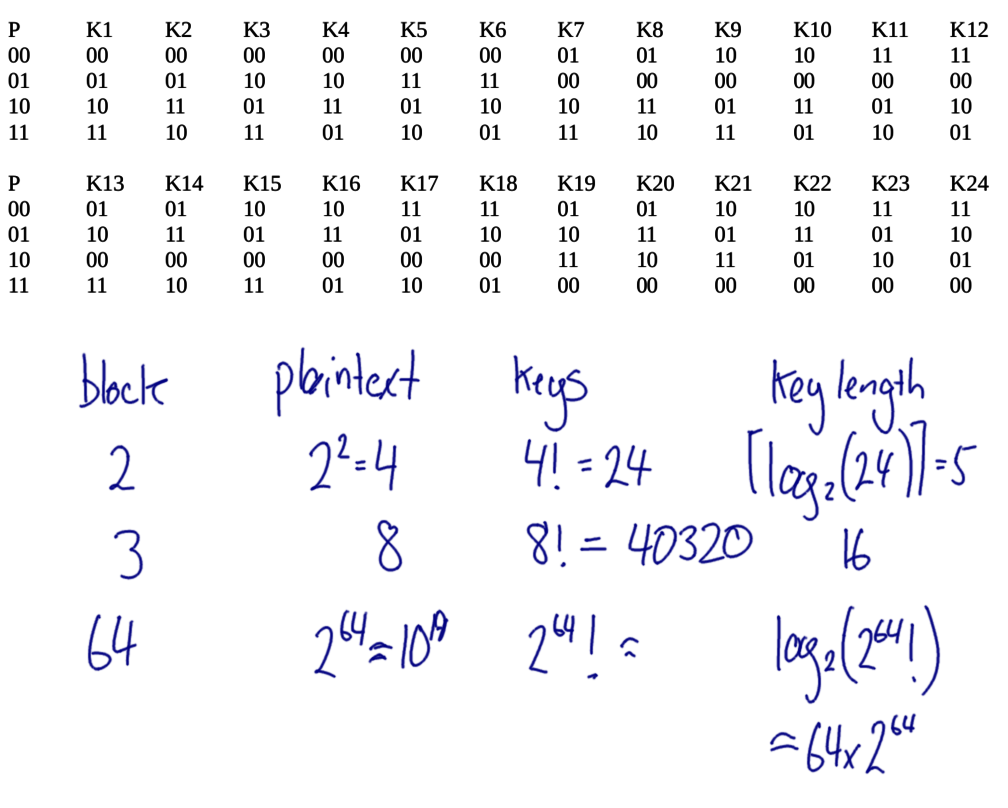 P K1 K2 K3 K4 K5 K6 K7 K8 K9 K10 K11 K12
00 00 00 00 00 00 00 01 01 10 10 11 11
01 01 01 10 10 11 11 00 00 00 00 00 00
10 10 11 01 11 01 10 10 11 01 11 01 10
11 11 10 11 01 10 01 11 10 11 01 10 01
P K13 K14 K15 K16 K17 K18 K19 K20 K21 K22 K23 K24
00 01 01 10 10 11 11 01 01 10 10 11 11
01 10 11 01 11 01 10 10 11 01 11 01 10
10 00 00 00 00 00 00 11 10 11 01 10 01
11 11 10 11 01 10 01 00 00 00 00 00 00
block plaintext keys key length
2 2²=4 4! = 24 ⌈log₂(24)⌉=5
3 8 8! = 40320 16
64 2⁶⁴≈10¹⁹ 2⁶⁴! ≈ log₂(2⁶⁴!)
≈64x2⁶⁴